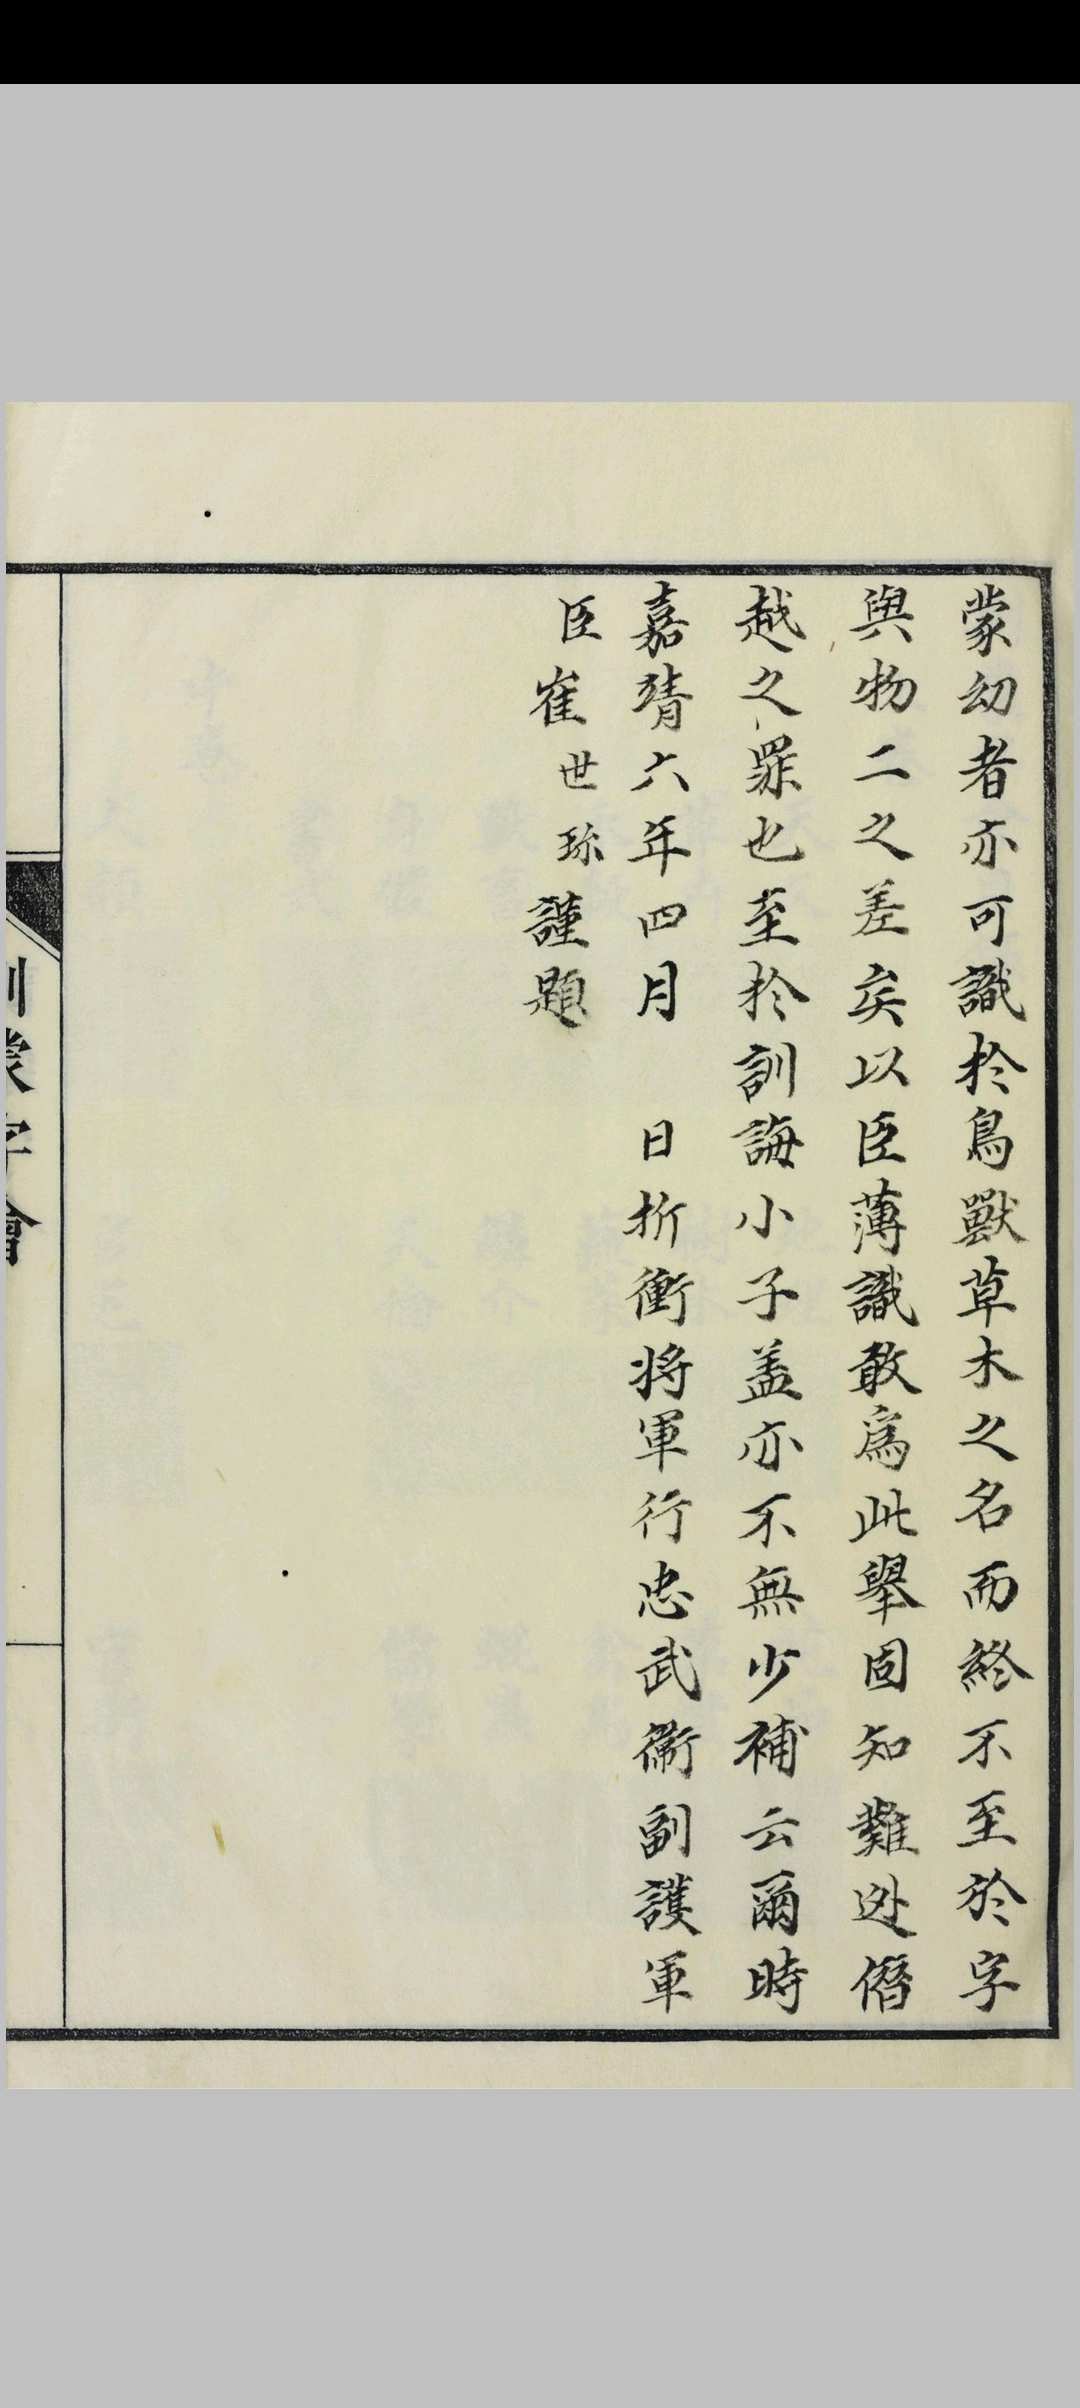 蒙幼者亦可識於鳥獸草木之名而終不至於字
與物二之差矣以臣薄識敢爲此舉固知難逃僭
越之罪也至於訓誨小子盖亦不無少補云爾時
嘉靖六年四月　日折衝將軍行忠武衛副護軍
臣崔世珍謹題
訓蒙字會